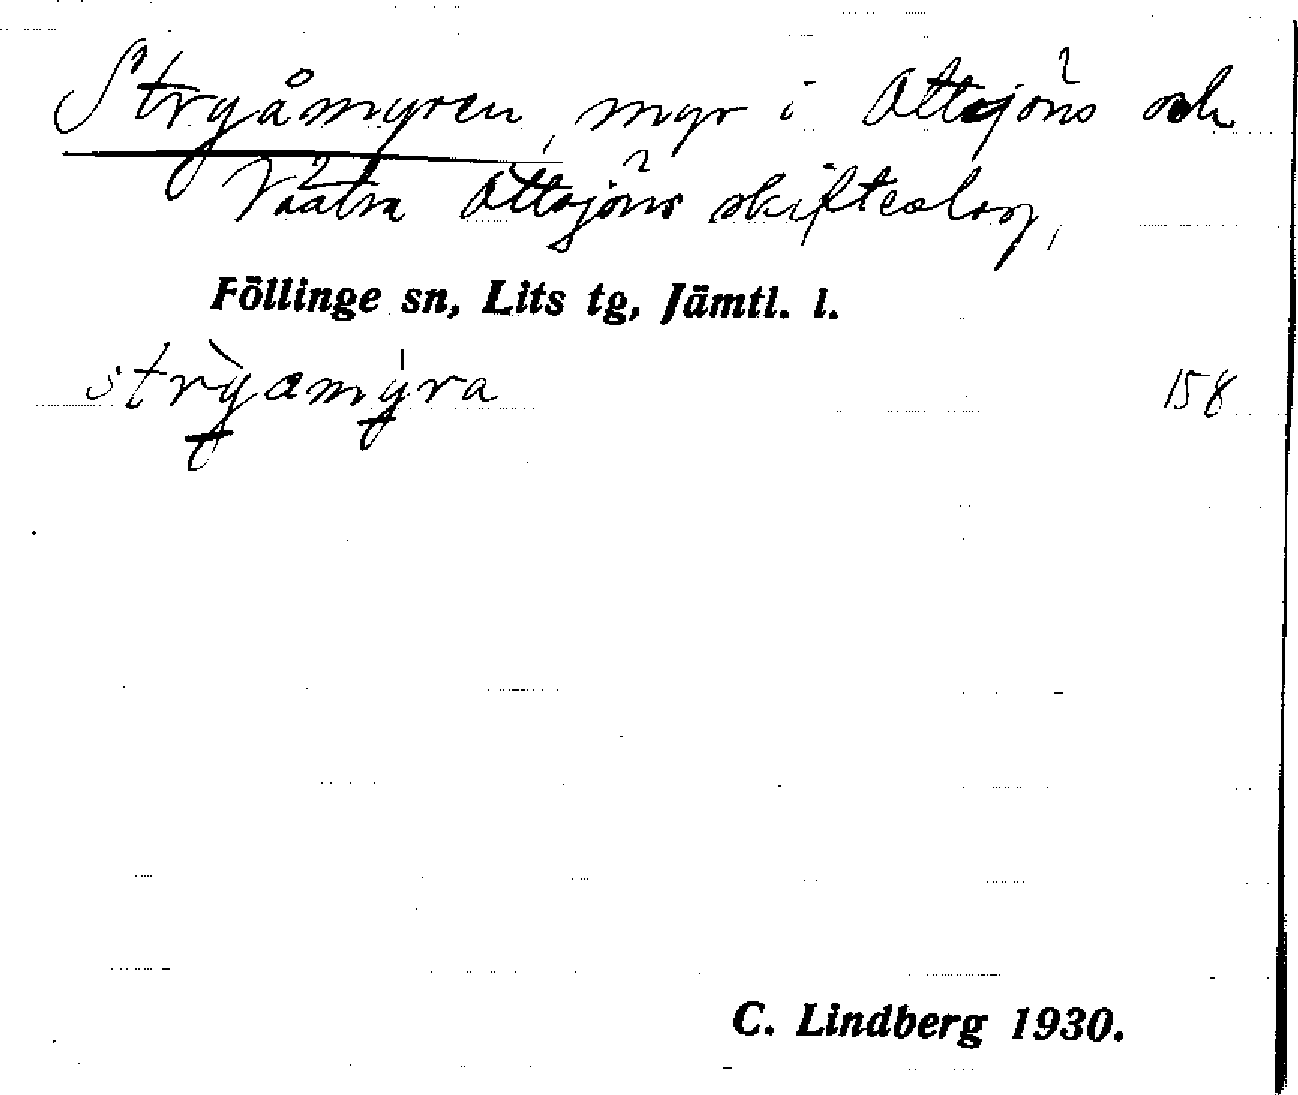 Stryåmyren, myr i Ottsjöns och
Västra Ottsjöns skifteslag,
Föllinge sn, Lits tg, Jämtl. l.
strỳamýra 158
C. Lindberg 1930.